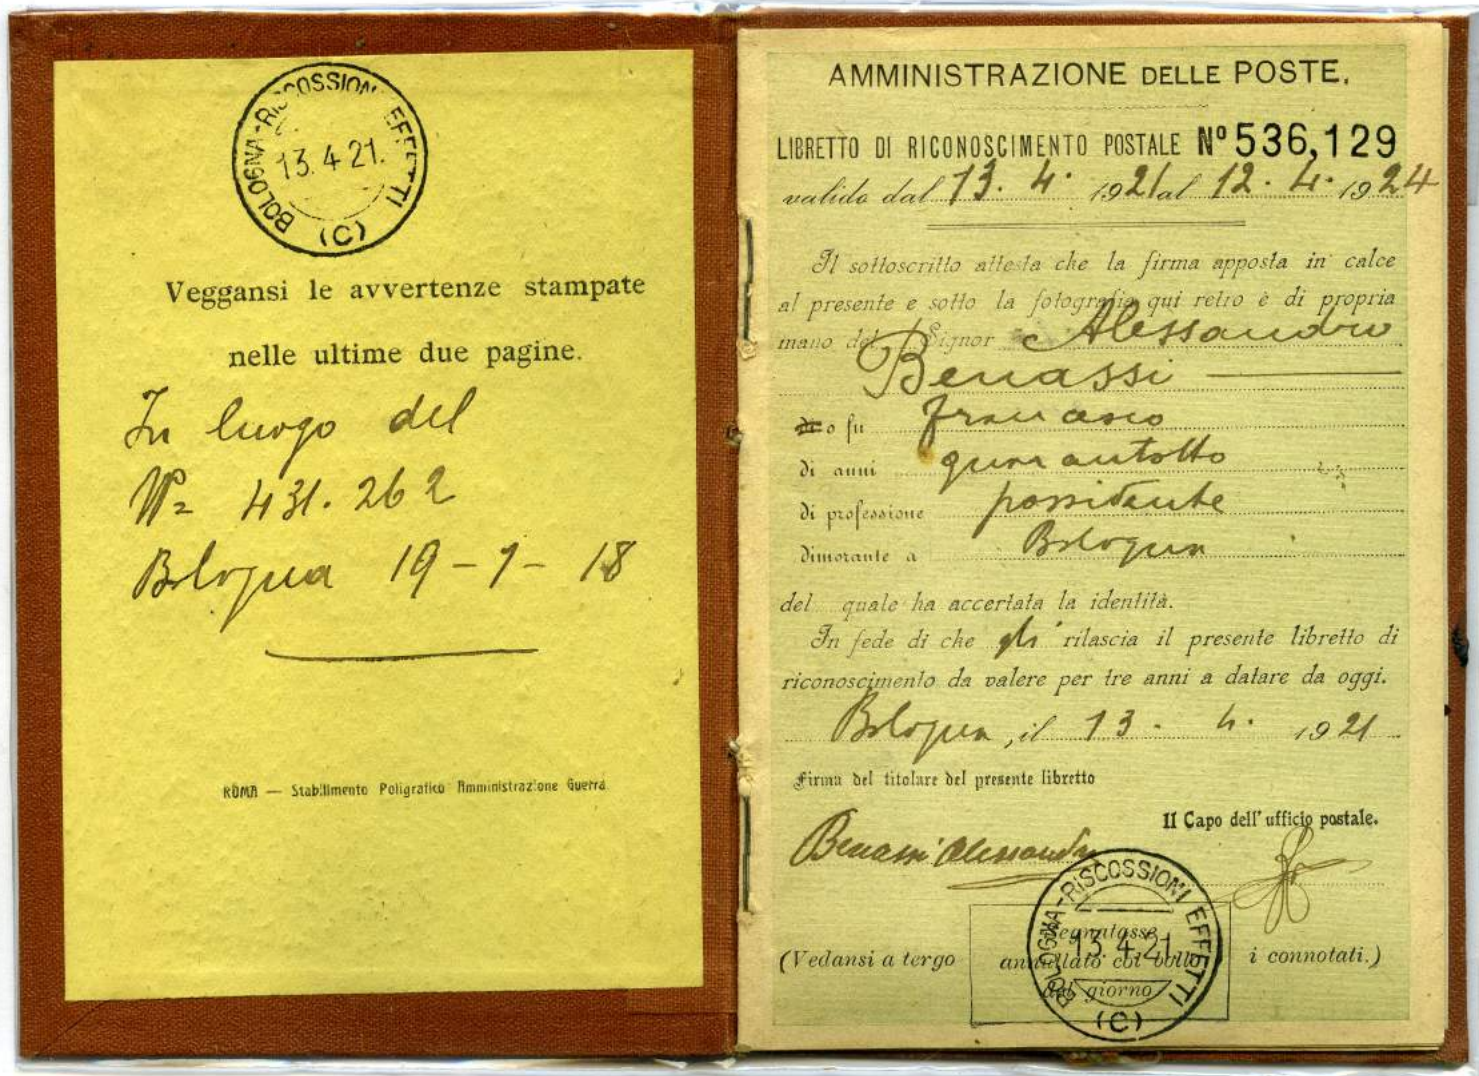 BOLOGNA-RISCOSSIONI EFFETTI
13.4.21.
(C)
Veggansi le avvertenze stampate
nelle ultime due pagine.
In luogo del
Nº 431.262
Bologna 19-1-18
ROMA — Stabilimento Poligrafico Amministrazione Guerra
AMMINISTRAZIONE DELLE POSTE.
LIBRETTO DI RICONOSCIMENTO POSTALE Nº 536,129
valido dal 13. 4. 1921 al 12. 4. 1924
Il sottoscritto attesta che la firma apposta in calce
al presente e sotto la fotografia qui retro è di propria
mano del Signor Alessandro
Benassi
di o fu Francesco
di anni quarantotto
di professione possidente
dimorante a Bologna
del quale ha accertata la identità.
In fede di che gli rilascia il presente libretto di
riconoscimento da valere per tre anni a datare da oggi.
Bologna, il 13. 4. 1921
Firma del titolare del presente libretto
Il Capo dell'ufficio postale.
Benassi Alessandro
BOLOGNA-RISCOSSIONI EFFETTI
13.4.21
(C)
Segnatasse
(Vedansi a tergo annullato col bollo i connotati.)
del giorno